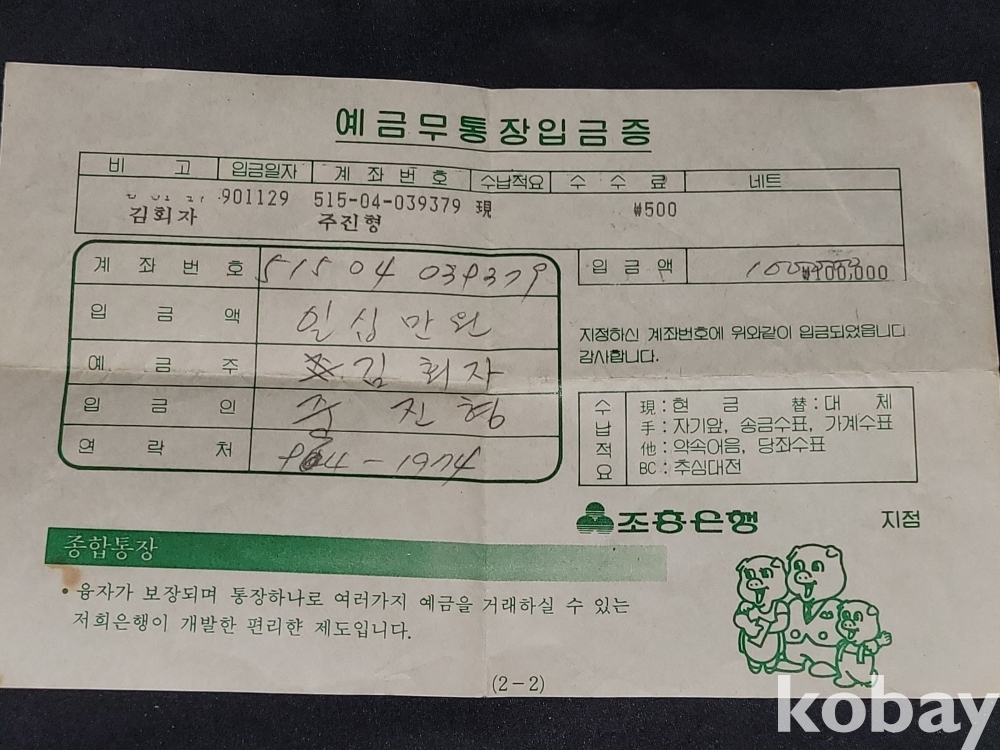 예금무통장입금증
비 고 입금일자 계좌번호 수납적요 수수료 네트
901129 515-04-039379 現 ₩500
김회자 주진형
계좌번호 515 04 039379
입금액 ₩100,000
입금액 일십만원
지정하신 계좌번호에 위와같이 입금되었읍니다
감사합니다.
예금주 김회자
입금인 주진형
연락처
수납적요
現:현금 替:대체
手:자기앞, 송금수표, 가계수표
他:약속어음, 당좌수표
BC:추심대전
조흥은행 지점
종합통장
• 융자가 보장되며 통장하나로 여러가지 예금을 거래하실 수 있는
저희은행이 개발한 편리한 제도입니다.
(2-2)
kobay